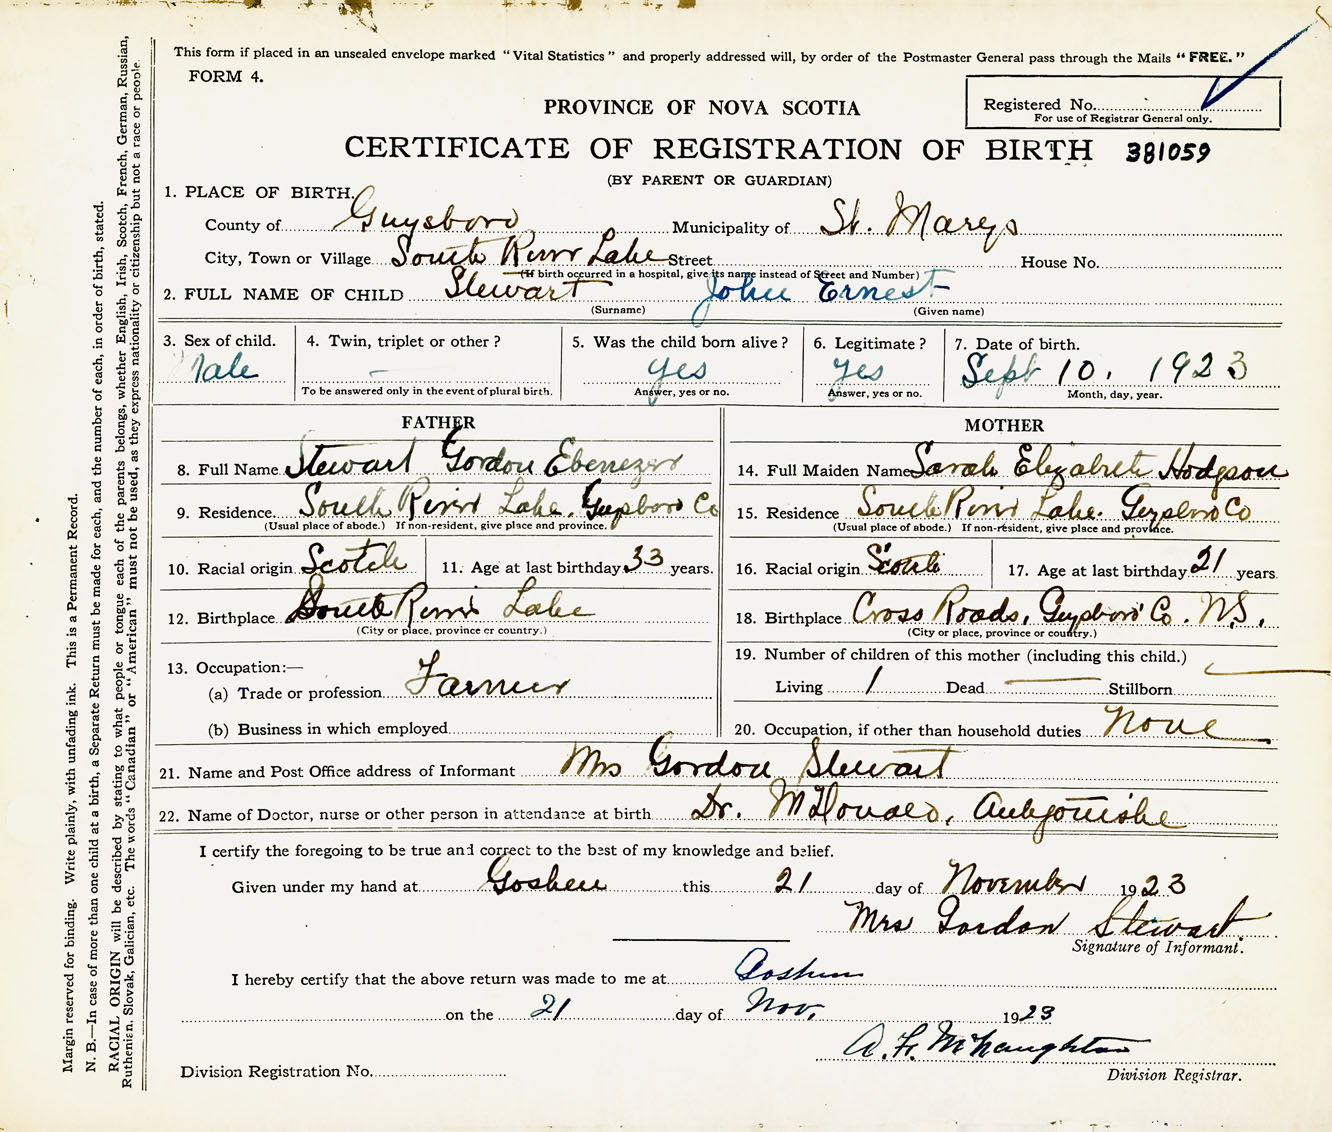 This form if placed in an unsealed envelope marked "Vital Statistics" and properly addressed will, by order of the Postmaster General pass through the Mails "FREE."
FORM 4.
Registered No.
For use of Registrar General only.
PROVINCE OF NOVA SCOTIA
CERTIFICATE OF REGISTRATION OF BIRTH 381059
(BY PARENT OR GUARDIAN)
1. PLACE OF BIRTH.
County of Guysboro Municipality of St. Marys
City, Town or Village South River Lake Street House No.
(If birth occurred in a hospital, give its name instead of Street and Number)
2. FULL NAME OF CHILD Stewart John Ernest
(Surname) (Given name)
3. Sex of child. 4. Twin, triplet or other? 5. Was the child born alive? 6. Legitimate? 7. Date of birth.
Male - yes yes Sept 10. 1923
To be answered only in the event of plural birth. Answer, yes or no. Answer, yes or no. Month, day, year.
FATHER
8. Full Name Stewart Gordon Ebenezer
9. Residence. South River Lake, Guysboro Co
(Usual place of abode.) If non-resident, give place and province.
10. Racial origin Scotch 11. Age at last birthday 33 years.
12. Birthplace South River Lake
(City or place, province or country.)
13. Occupation:—
(a) Trade or profession Farmer
(b) Business in which employed
MOTHER
14. Full Maiden Name Sarah Elizabeth Hodgson
15. Residence South River Lake. Guysboro Co
(Usual place of abode.) If non-resident, give place and province.
16. Racial origin Scotch 17. Age at last birthday 21 years.
18. Birthplace Cross Roads, Guysboro Co. N.S.
(City or place, province or country.)
19. Number of children of this mother (including this child.)
Living 1 Dead — Stillborn —
20. Occupation, if other than household duties None
21. Name and Post Office address of Informant Mrs Gordon Stewart
22. Name of Doctor, nurse or other person in attendance at birth Dr. McDonald, Antigonishe
I certify the foregoing to be true and correct to the best of my knowledge and belief.
Given under my hand at Goshen this 21 day of November 1923
Mrs Gordon Stewart.
Signature of Informant.
I hereby certify that the above return was made to me at Goshen
on the 21 day of Nov. 1923
A. F. McNaughton
Division Registrar.
Division Registration No.
Margin reserved for binding. Write plainly, with unfading ink. This is a Permanent Record.
N. B.—In case of more than one child at a birth, a Separate Return must be made for each, and the number of each, in order of birth, stated.
RACIAL ORIGIN will be described by stating to what people or tongue each of the parents belongs, whether English, Irish, Scotch, French, German, Russian,
Ruthenian, Slovak, Galician, etc. The words "Canadian" or "American" must not be used, as they express nationality or citizenship but not a race or people.